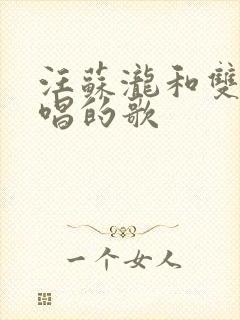 汪蘇瀧和雙
唱的歌
一个女人